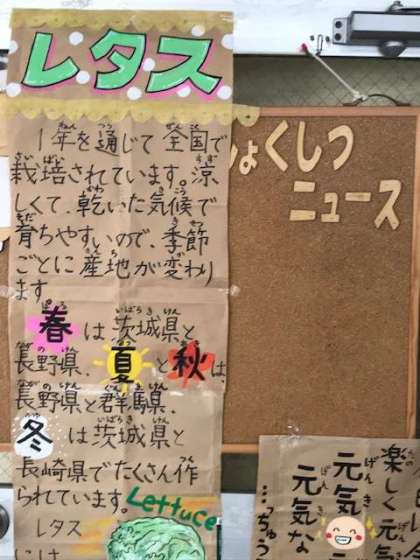 レタス
1年を通じて全国で
栽培されています。涼
しくて、乾いた気候で
育ちやすいので、季節
ごとに産地が変わり
ます
春は茨城県と
長野県、夏と秋は、
長野県と群馬県、
冬は茨城県と
長崎県でたくさん作
られています。
Lettuce
レタス
には
ょくしつ
ニュース
楽しく元
元気
元気な